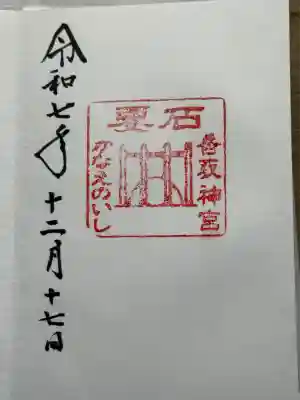 香取神宮
要石
かなめのいし
令和七年十二月十七日